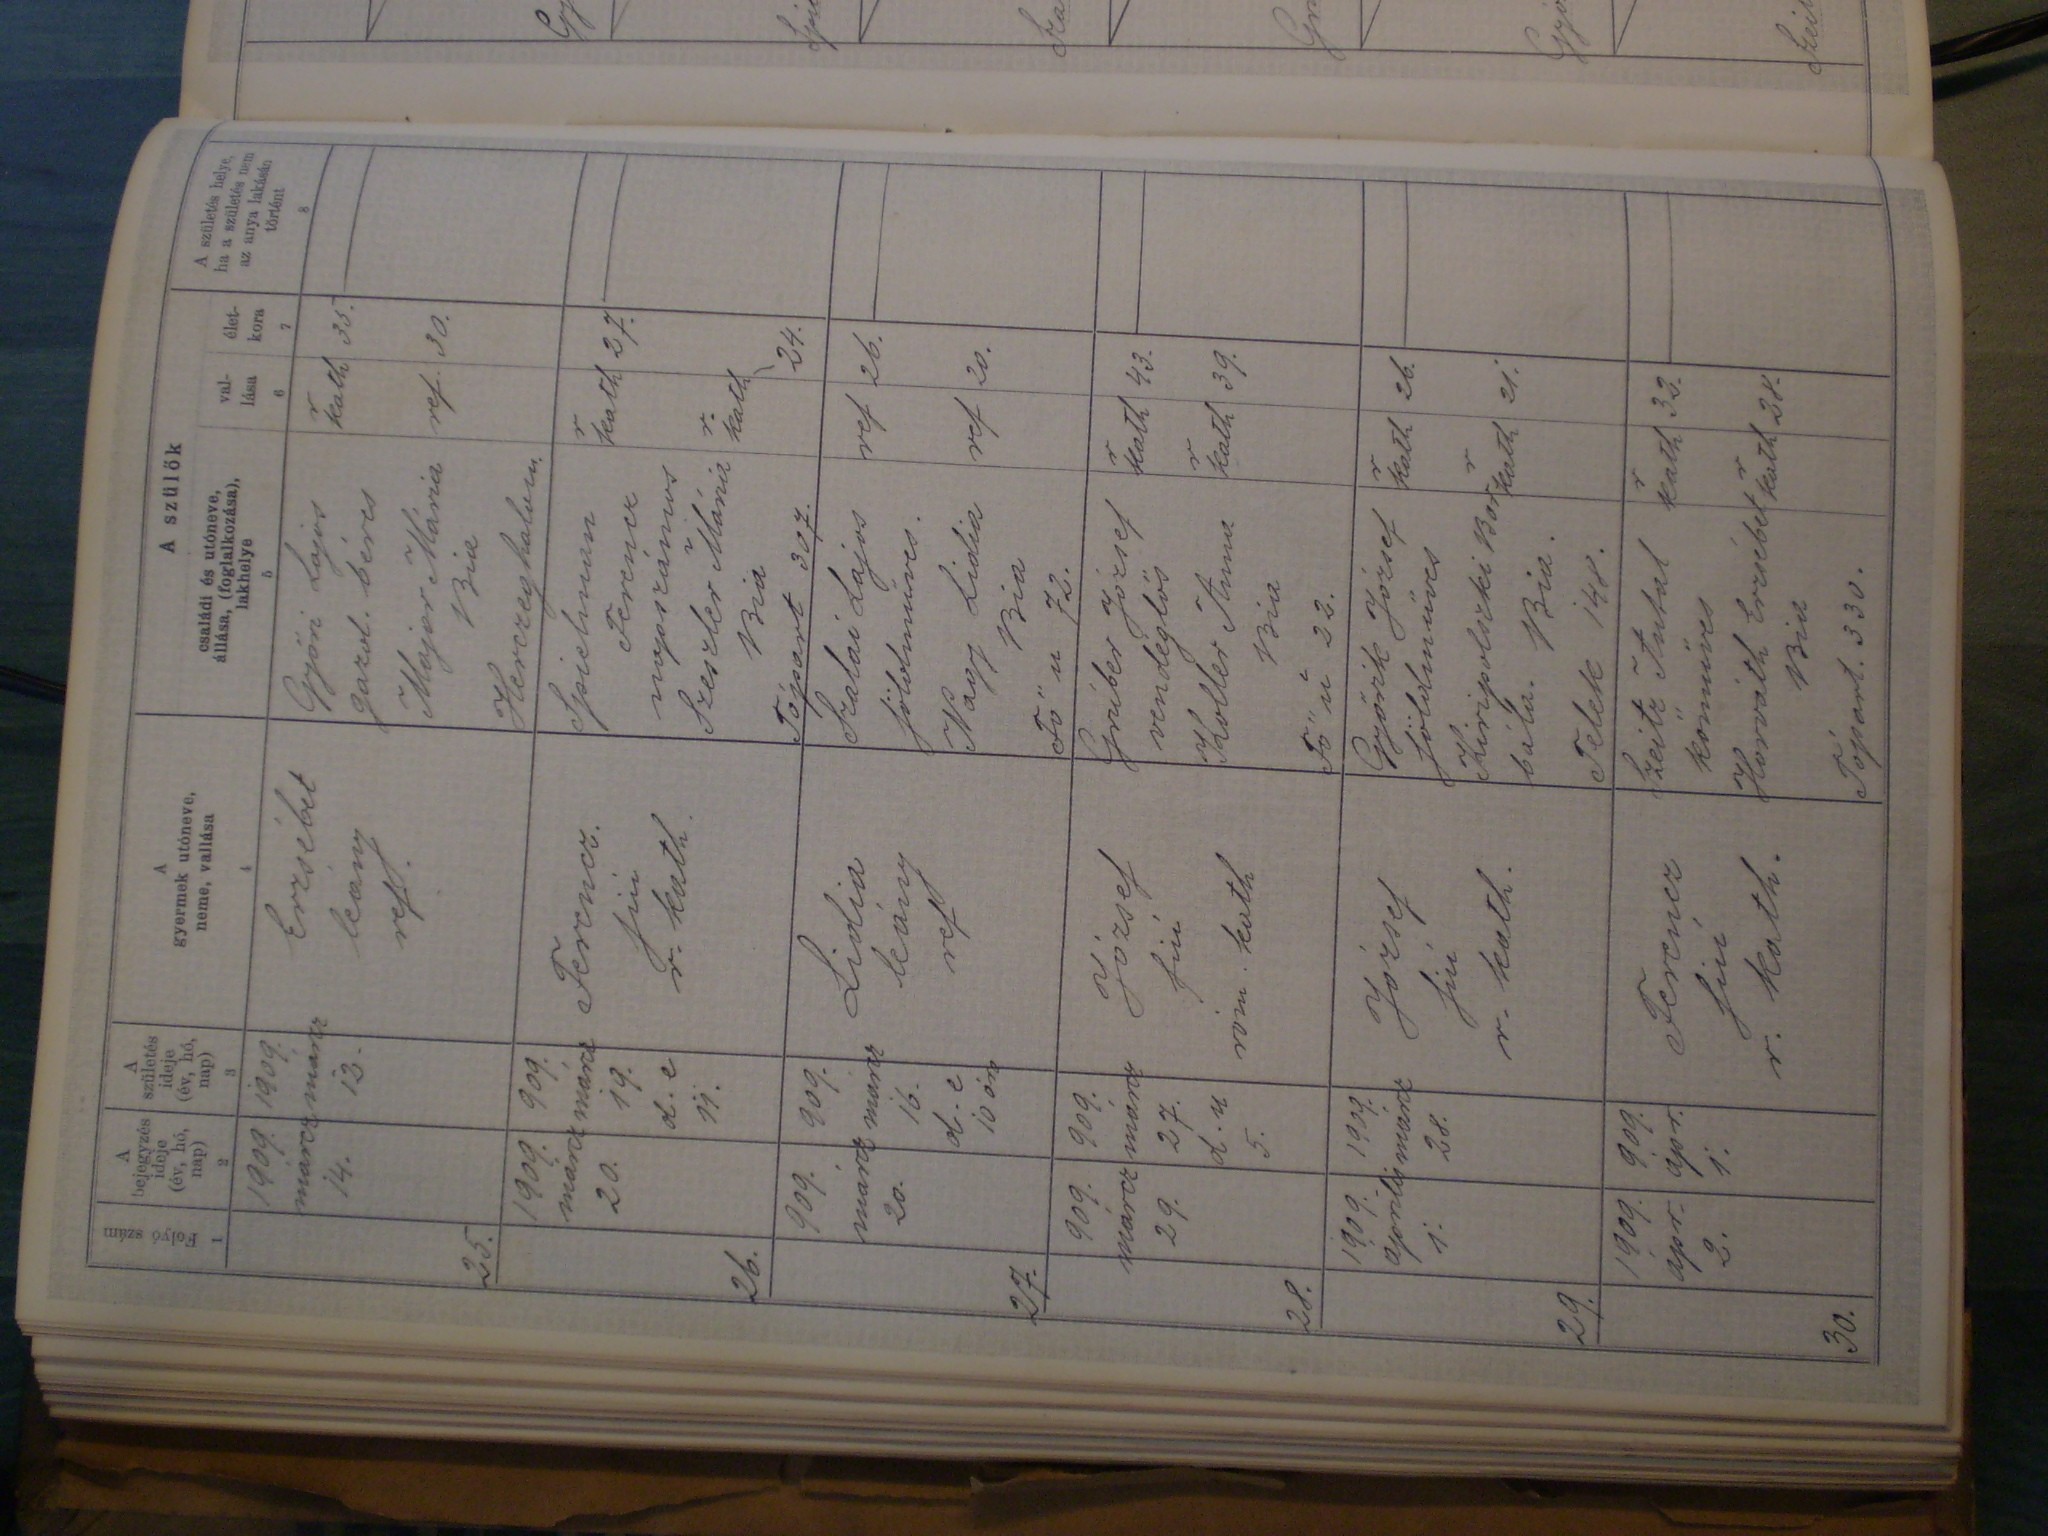 Folyó szám
1
A
bejegyzés
ideje
(év, hó,
nap)
2
A
születés
ideje
(év, hó,
nap)
3
A
gyermek utóneve,
neme, vallása
4
A szülők
családi és utóneve,
állása, (foglalkozása),
lakhelye
5
val-
lása
6
élet-
kora
7
A születés helye,
ha a születés nem
az anya lakásán
történt
8
25.
1909.
márcz
14.
1909.
márcz
13.
Erzsébet
leány
ref.
Győri Lajos
gazd. béres
Májer Mária
Bia
Herczeghalom.
r
kath
35.
ref.
30.
26.
1909.
márcz
20.
909.
márcz
19.
d. e
11.
Ferencz.
fiú
r. kath.
Spielman
Ferencz
napszámos
Szeszler Mária
Bia
Tópart 307.
r
kath
27.
r.
kath
24.
27.
909.
márcz
20.
909.
márcz
16.
d. e
10 ón
Lidia
leány
ref
Szalai Lajos
földmüves.
Nagy Lidia
Bia
Fő u 72.
ref
26.
ref
20.
28.
909.
márcz
29.
909.
márcz
27.
d. u
5.
József
fiú
róm. kath
Gruber József
vendeglős
Koller Anna
Bia
Fő u 22.
r
kath
43.
r
kath
39.
29.
1909.
április
1.
1909.
márcz
28.
József
fiú
r. kath.
Győrik József
földmüves
Kiripolszki Bor
bála. Bia.
Telek 148.
r
kath
26.
r
kath
21.
30.
1909.
ápr.
2.
909.
ápr.
1.
Ferencz
fiú
r. kath.
Szeitz Antal
kőmüves
Horváth Erzsébet
Bia
Tópart. 330.
r
kath
32.
r
kath
28.